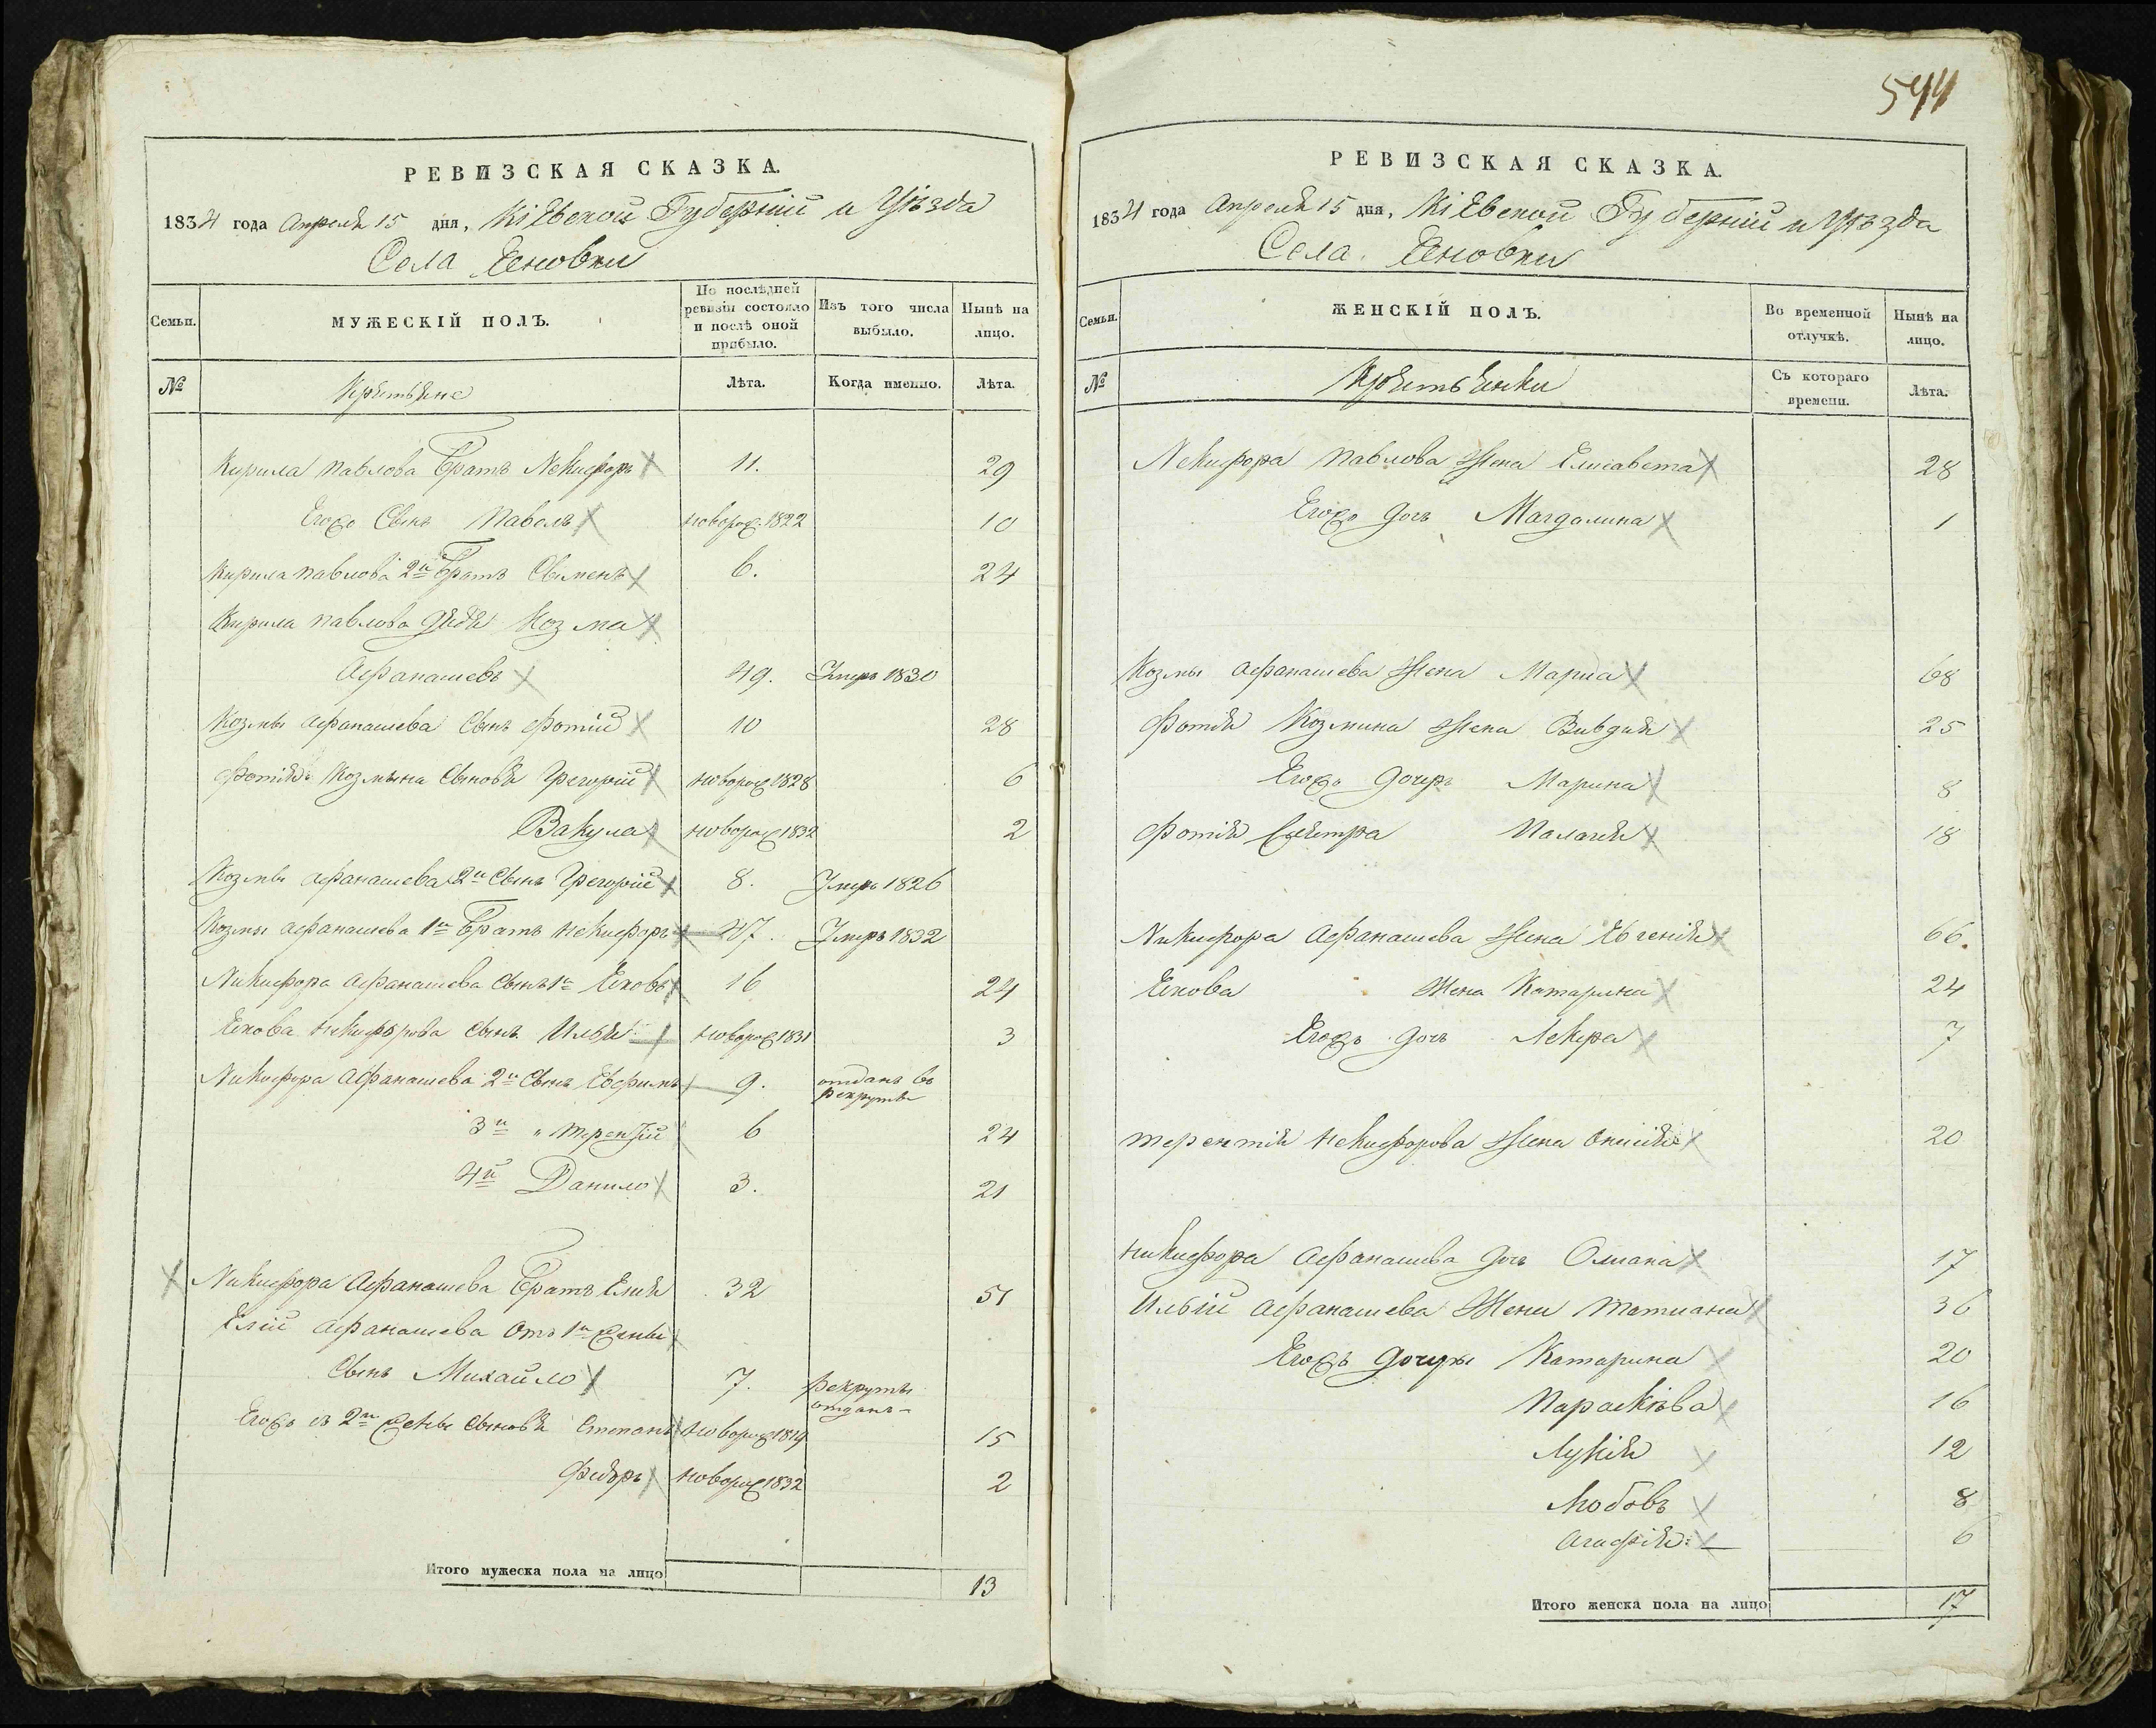 РЕВИЗСКАЯ СКАЗКА.
1834 года Апреля 15 дня, Кіевской Губерніи и Уѣзда
Села Ясновки
Семьи.
МУЖЕСКІЙ ПОЛЪ.
По послѣдней ревизіи состояло и послѣ оной прибыло.
Изъ того числа выбыло.
Нынѣ на лицо.
№
Крѣстьяне
Лѣта.
Когда именно.
Лѣта.
Кирила Павлова Братъ Некифоръ 11. 29
Егожъ Сынъ Павелъ новорож. 1822 10
Кирила Павлова 2й Братъ Сименъ 6. 24
Кирила Павлова дядя Козма
Афанашевъ 49. Умеръ 1830
Козмы Афанашева Сынъ Фотій 10 28
Фотія Козмина Сыновя Григорій новорож 1828 6
Вакула новорож 1832 2
Козмы Афанашева 2й Сынъ Григорій 8. Умеръ 1826
Козмы Афанашева 1й Братъ Некифоръ 47. Умеръ 1832
Никифора Афанашева Сынъ 1й Яковъ 16 24
Якова Никифорова Сынъ Илья новорож 1831 3
Никифора Афанашева 2й Сынъ Евфимъ 9. отданъ въ рекруты
3й " Терентій 6 24
4й Данило 3. 21
Никифора Афанашева Братъ Елия 32 51
Еліи Афанашева отъ 1й жены
Сынъ Михайло 7. Рекруты отданъ
Егожъ съ 2й жены Сыновя Степанъ новорож 1819 15
Федоръ новорож 1832 2
Итого мужеска пола на лицо 13
544
РЕВИЗСКАЯ СКАЗКА.
1834 года Апреля 15 дня, Кіевской Губерніи и Уѣзда
Села Ясновки
Семьи.
ЖЕНСКІЙ ПОЛЪ.
Во временной отлучкѣ.
Нынѣ на лицо.
№
Крѣстьянки
Съ котораго времени.
Лѣта.
Некифора Павлова Жена Елисавета 28
Егожъ дочь Магдалина 1
Козмы Афанашева Жена Мариа 68
Фотія Козмина Жена Вивдия 25
Егожъ дочеръ Марина 8
Фотія Сѣстра Палагия 18
Никифора Афанашева Жена Евгенія 66.
Якова Жена Катарина 24
Егожъ дочь 7
Терентія Некифорова Жена 20
Никифора Афанашева дочь 17
Ильіи Афанашева Жена Татиана 36
Егожъ дочеры Катарина 20
Параскѣва 16
Лукія 12
Любовъ 8
Агафія 6
Итого женска пола на лицо 17